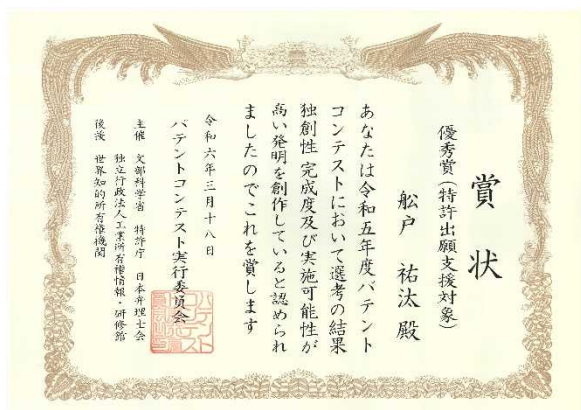 賞状
優秀賞(特許出願支援対象)
舩戸 祐汰 殿
あなたは令和五年度パテント
コンテストにおいて選考の結果
独創性 完成度及び実施可能性が
高い発明を創作していると認められ
ましたのでこれを賞します
令和六年三月十八日
パテントコンテスト実行委員会
主催 文部科学省 特許庁 日本弁理士会
独立行政法人工業所有権情報・研修館
後援 世界知的所有権機関